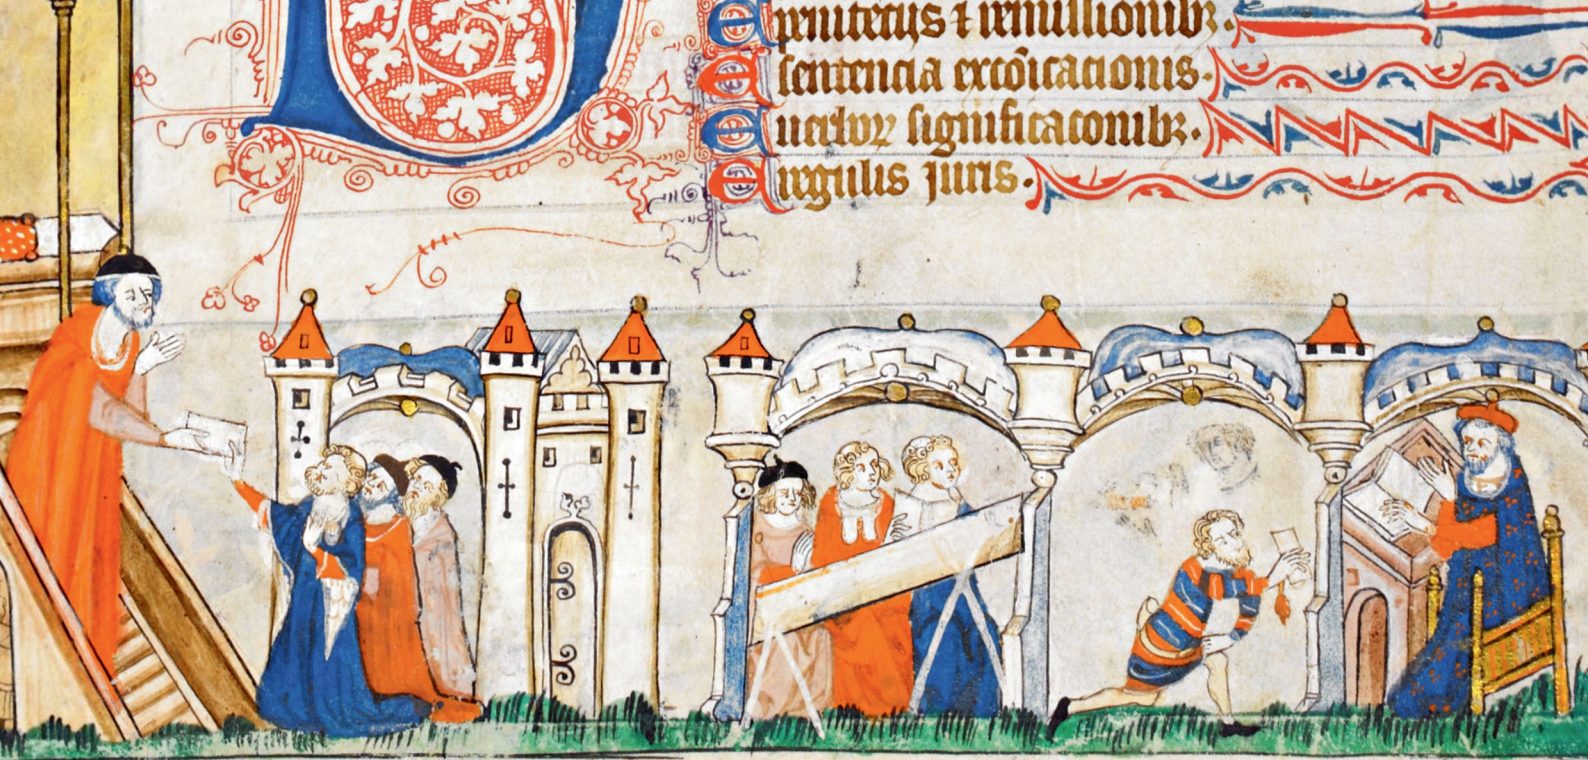 E penitecijs ⁊ remissionibꝫ.
E sentencia excōicacionis.
E uerboꝝ significaconibꝫ.
E regulis juris.